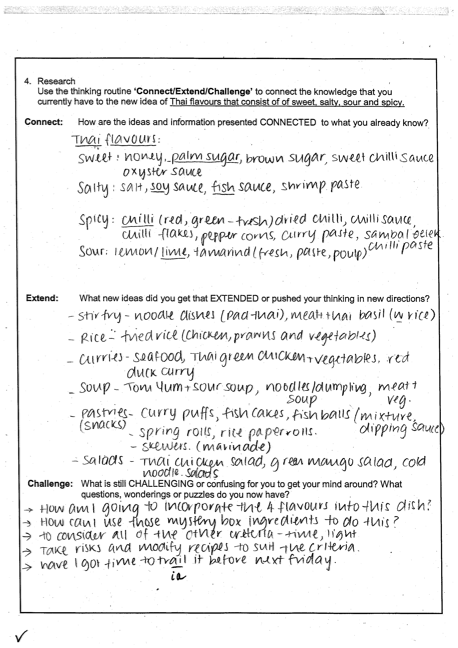 4. Research
Use the thinking routine 'Connect/Extend/Challenge' to connect the knowledge that you
currently have to the new idea of Thai flavours that consist of of sweet, salty, sour and spicy.
Connect: How are the ideas and information presented CONNECTED to what you already know?
Thai flavours:
Sweet: honey, palm sugar, brown sugar, sweet chilli sauce
oxyster sauce
Salty: salt, soy sauce, fish sauce, shrimp paste
Spicy: chilli (red, green - fresh) dried chilli, chilli sauce,
chilli flakes, pepper corns, curry paste, sambal oelek
chilli paste
Sour: lemon/lime, tamarind (fresh, paste, poulp)
Extend: What new ideas did you get that EXTENDED or pushed your thinking in new directions?
- Stir fry - noodle dishes (Pad-thai), meat + thai basil (w rice)
- Rice - fried rice (Chicken, prawns and vegetables)
- Curries - Seafood, Thai green chicken + vegetables. red
duck curry
- Soup - Tom Yum + sour soup, noodles/dumpling, meat +
soup veg.
- pastries - Curry puffs, fish cakes, fish balls (mixture,
(snacks) dipping sauce)
- spring rolls, rice paper rolls.
- skewers. (marinade)
- Salads - Thai chicken salad, green mango salad, cold
noodle salads
Challenge: What is still CHALLENGING or confusing for you to get your mind around? What
questions, wonderings or puzzles do you now have?
→ How am I going to incorporate the 4 flavours into this dish?
→ How can I use those mystery box ingredients to do this?
→ to consider all of the other creteria - time, light
→ Take risks and modify recipes to suit the criteria.
→ have I got time to trail it before next friday.
ia